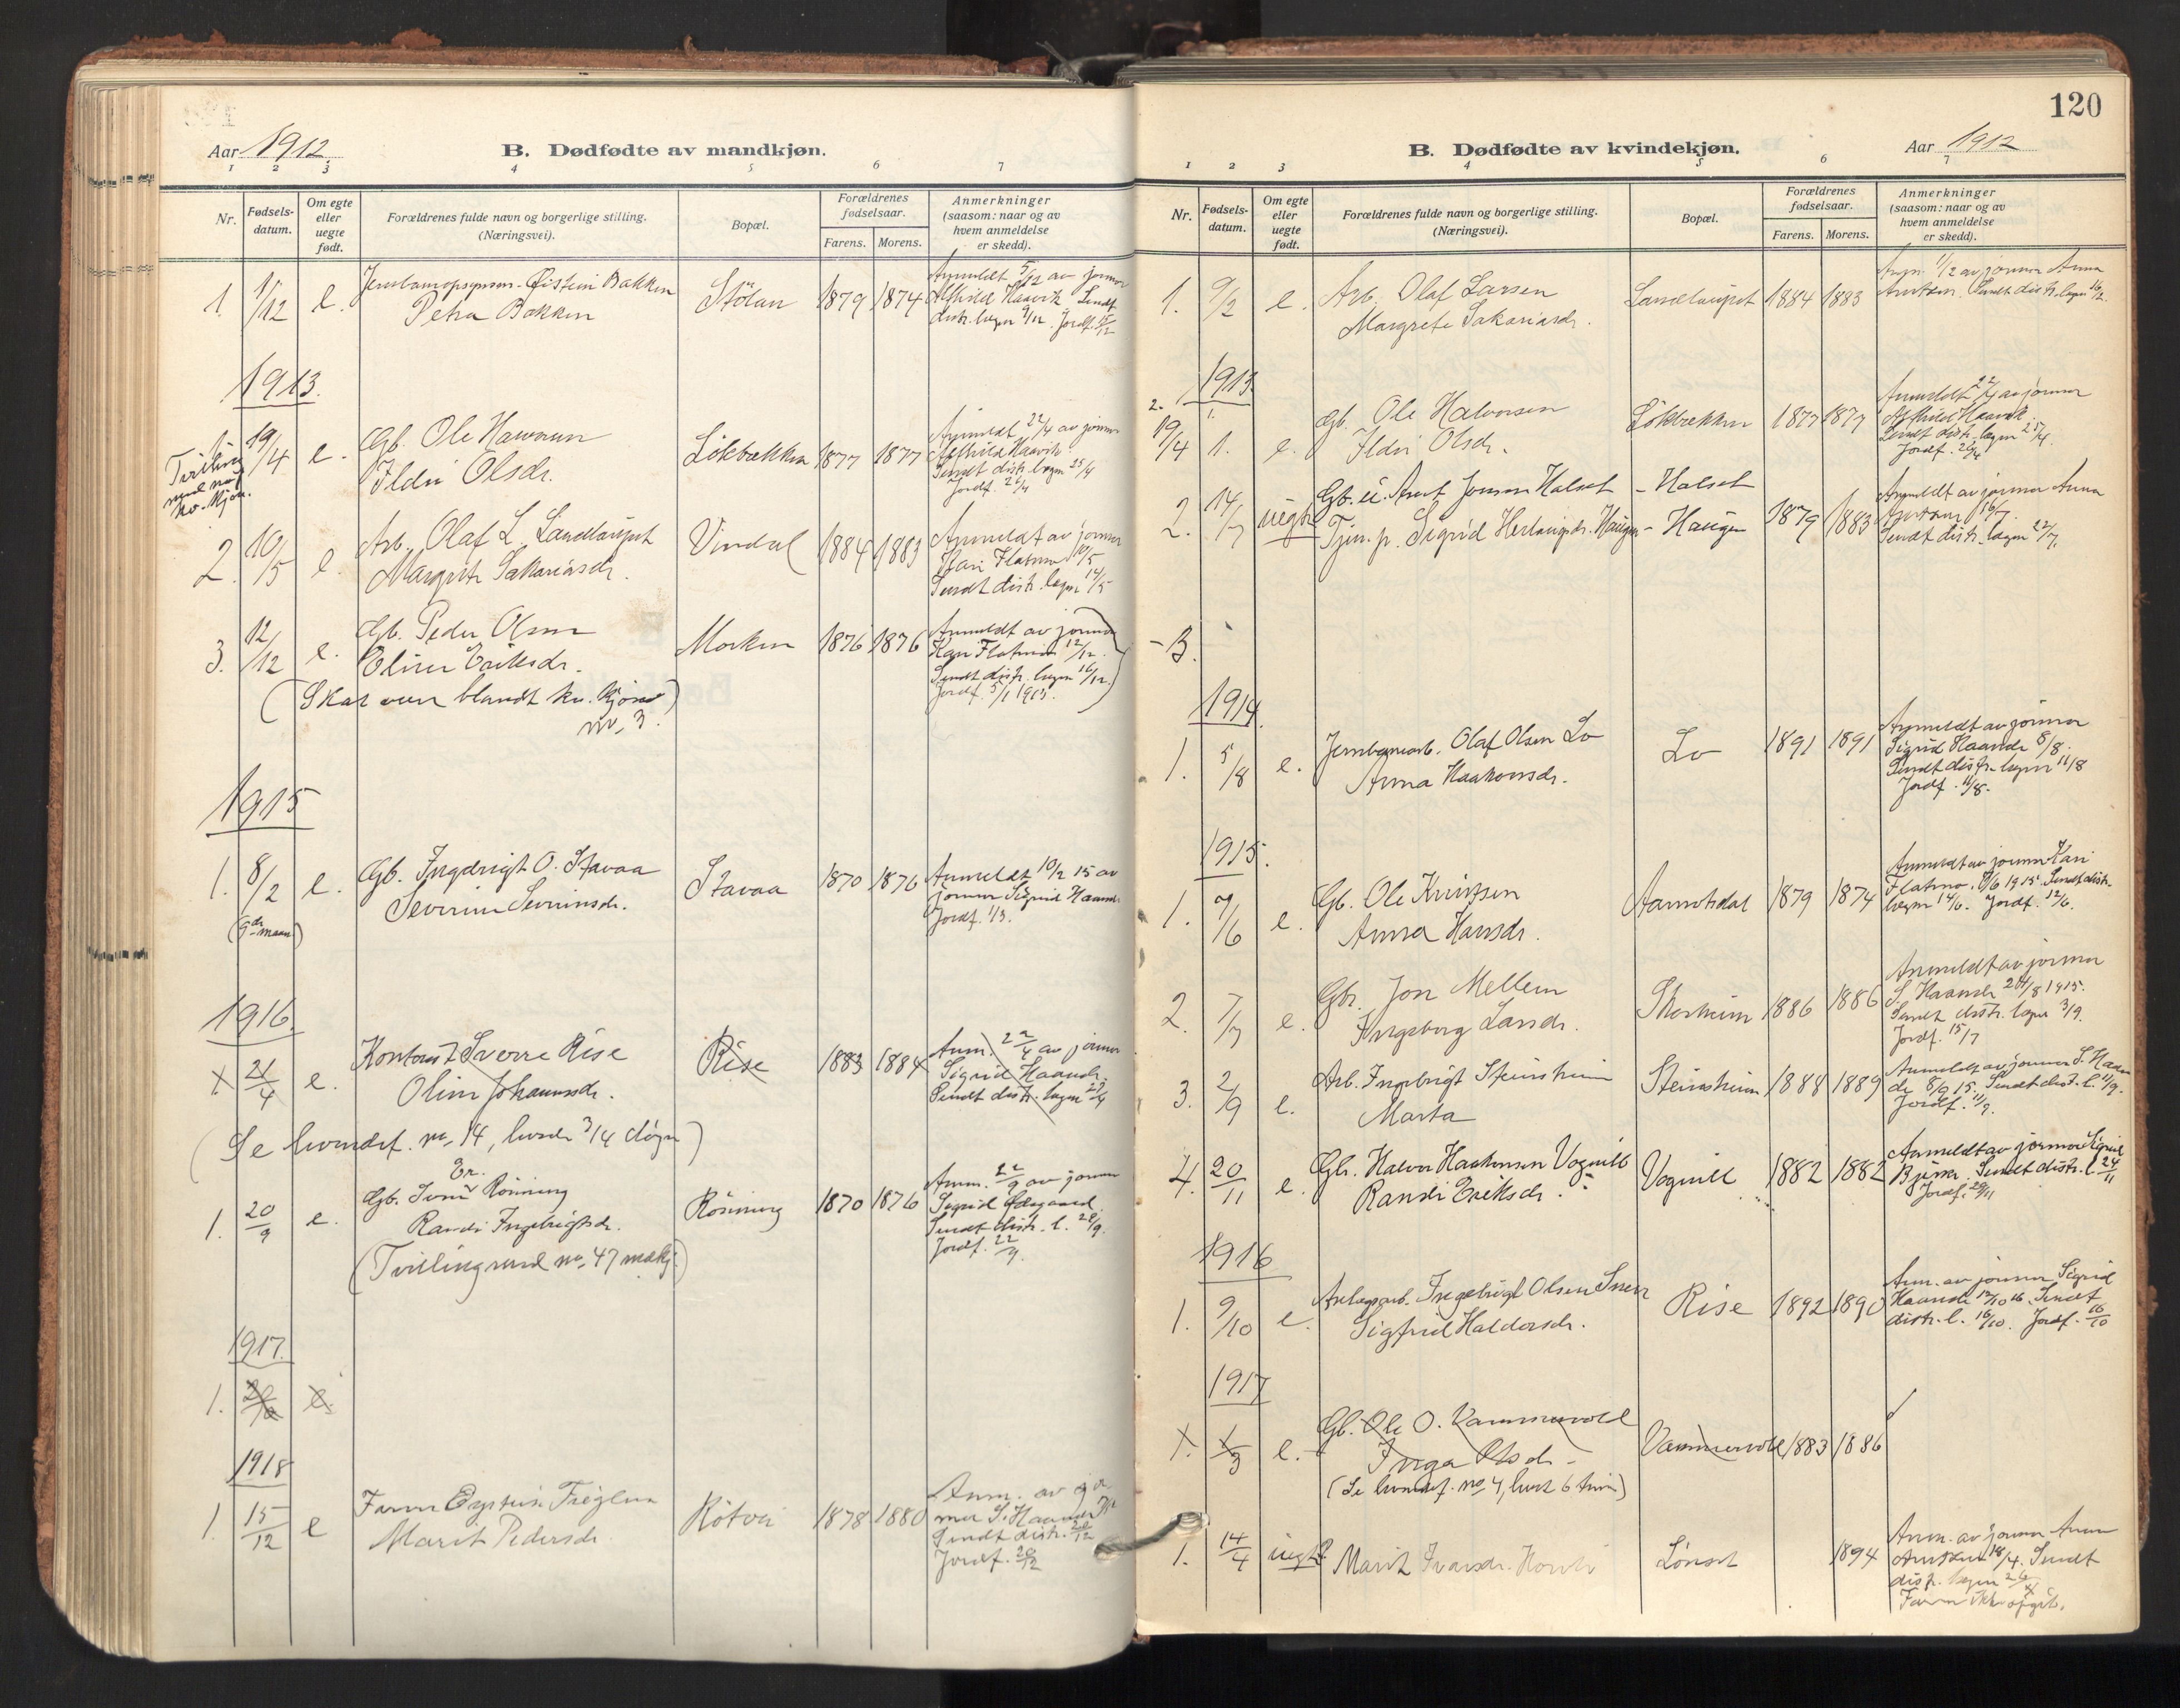 Aar 1912
B. Dødfødte av mandkjøn.
1 2 3 4 5 6 7
Nr.
Fødsels-
datum.
Om egte
eller
uegte
født.
Forældrenes fulde navn og borgerlige stilling.
(Næringsvei).
Bopæl.
Forældrenes
fødselsaar.
Farens. Morens.
Anmerkninger
(saasom: naar og av
hvem anmeldelse
er skedd).
1. 1/12 e. Øistein Bakken
Petra Bakken
Stölan 1879 1874
Anmeldt 5/12 av jormor
Alfhild Haavik. Sendt
distr. lægen 9/12. Jordf. 15/12
1913.
1. 19/4 e. Gb. Ole Halvorsen
Ildri Olsdr.
Lökbækken 1877 1877
Anmeldt 22/4 av jormor
Alfhild Haavik.
Sendt distr. lægen 25/4
Jordf. 26/4
Tvilling
med no 1
kv. kjön.
2. 10/5 e. Arb. Olaf L. Landlaupet
Margrete Sakariasdr.
Vindal 1884 1883
Anmeldt av jormor
Kari Flatmo 10/5
Sendt distr. lægen 14/5
3. 12/12 e. Gb. Peder Olsen
Eliren Eriksdr.
Morken 1876 1876
Anmeldt av jormor
Kari Flatmo 12/12.
Sendt distr. lægen 16/12.
Jordf. 5/1 1913.
(Skal være blandt kv. kjön)
no. 3.
1915
1. 8/2 e. Gb. Ingebrigt O. Stavaa
Severine Severinsdr.
Stavaa 1870 1876
Anmeldt 10/2 15 av
jormor Sigrid Haande
Jordf. 1/3.
(9de maan)
1916.
1. 21/4 e. Kontorist Sverre Rise
Oline Johannesdr.
Rise 1883 1884
Anm. 22/4 av jormor
Sigrid Haande.
Sendt distr. lægen 27/4
(Se levendef. no. 14, levde 3/4 døgn)
1. 20/9 e. Gb. Ivar Er. Rönning
Randi Ingebrigtsdr.
Rönning 1870 1876
Anm. 22/9 av jormor
Sigrid Ødegaard.
Sendt distr. l. 28/9.
Jordf. 22/9.
(Tvilling med no. 47 mandkj.)
1917.
1. e.
1918
1. 15/12 e Eystein
Marit Pedersdr.
Rötvei 1878 1880
Anm. av jor
mor S. Haande
Sendt distr. 20/12
Jordf. 20/12
120
B. Dødfødte av kvindekjøn.
Aar 1912
1 2 3 4 5 6 7
Nr.
Fødsels-
datum.
Om egte
eller
uegte
født.
Forældrenes fulde navn og borgerlige stilling.
(Næringsvei).
Bopæl.
Forældrenes
fødselsaar.
Farens. Morens.
Anmerkninger
(saasom: naar og av
hvem anmeldelse
er skedd).
1. 9/2 e. Arb. Olaf Larsen
Margrete Sakariasdr.
Landlaupet 1884 1883
Anm. 11/2 av jormor Anna
Arntsen. Sendt distr. lægen 16/2.
1913.
19/4 1. e. Gb. Ole Halvorsen
Ildri Olsdr.
Lökbækken 1877 1877
Anmeldt 22/4 av jormor
Alfhild Haavik.
Sendt distr. lægen 25/4.
Jordf. 26/4
2. 14/7 uegte Gb. u. Arnt Jonsen Halset – Halset
Tjen.p. Sigrid Herlaugsdr. Haugen – Haugen
1879 1883
Anmeldt av jormor Anna
Arntsen 16/7.
Sendt distr. lægen 22/7.
–B.
1914.
1. 5/8 e. Jernbanearb. Olaf Olsen Lo
Anna Haakonsdr.
Lo 1891 1891
Anmeldt av jormor
Sigrid Haande 8/8.
Sendt distr. lægen 11/8
Jordf. 11/8.
1915.
1. 7/6 e. Gb. Ole Knutsen
Anna Hansdr.
Aamotsdal 1879 1874
Anmeldt av jormor Kari
Flatmo. 8/6 1915. Sendt distr.
lægen 14/6. Jordf. 12/6.
2. 7/7 e. Gbr. Jon Mellem
Ingeborg Larsdr.
Storheim 1886 1886
Anmeldt av jormor
S. Haande 24/8 1915.
Sendt distr. lægen 3/9.
Jordf. 15/7
3. 2/9 e. Arb. Ingebrigt Steinsheim
Marta
Steinsheim 1888 1889
Anmeldt av jormor S. Haan
de 8/9 15. Sendt dist. l. 11/9.
Jordf. 11/9.
4. 20/11 e. Gb. Halvor Haakonsen Vognill
Randi Eriksdr.
Vognill 1882 1882
Anmeldt av jormor Sigrid
Bjerke. Sendt distr. l. 24/11
Jordf. 28/11
1916
1. 9/10 e. Anlægsarb. Ingebrigt Olsen
Sigfrid Haldorsdr.
Rise 1892 1890
Anm. av jormor Sigrid
Haande 12/10 16. Sendt
distr. l. 16/10. Jordf. 16/10
1917
1. 1/3 e. Gb. Ole O. Vammervold
Inga Olsdr.
Vammervold 1883 1886
(Se levendef. no 4, levet 6 timer)
1. 14/4 uegte Marit Ivarsdr.
Lönset 1894
Anm. av jormor Anna
Arntsen 18/4. Sendt
distr. lægen 26/4
Faren ikke opgit.